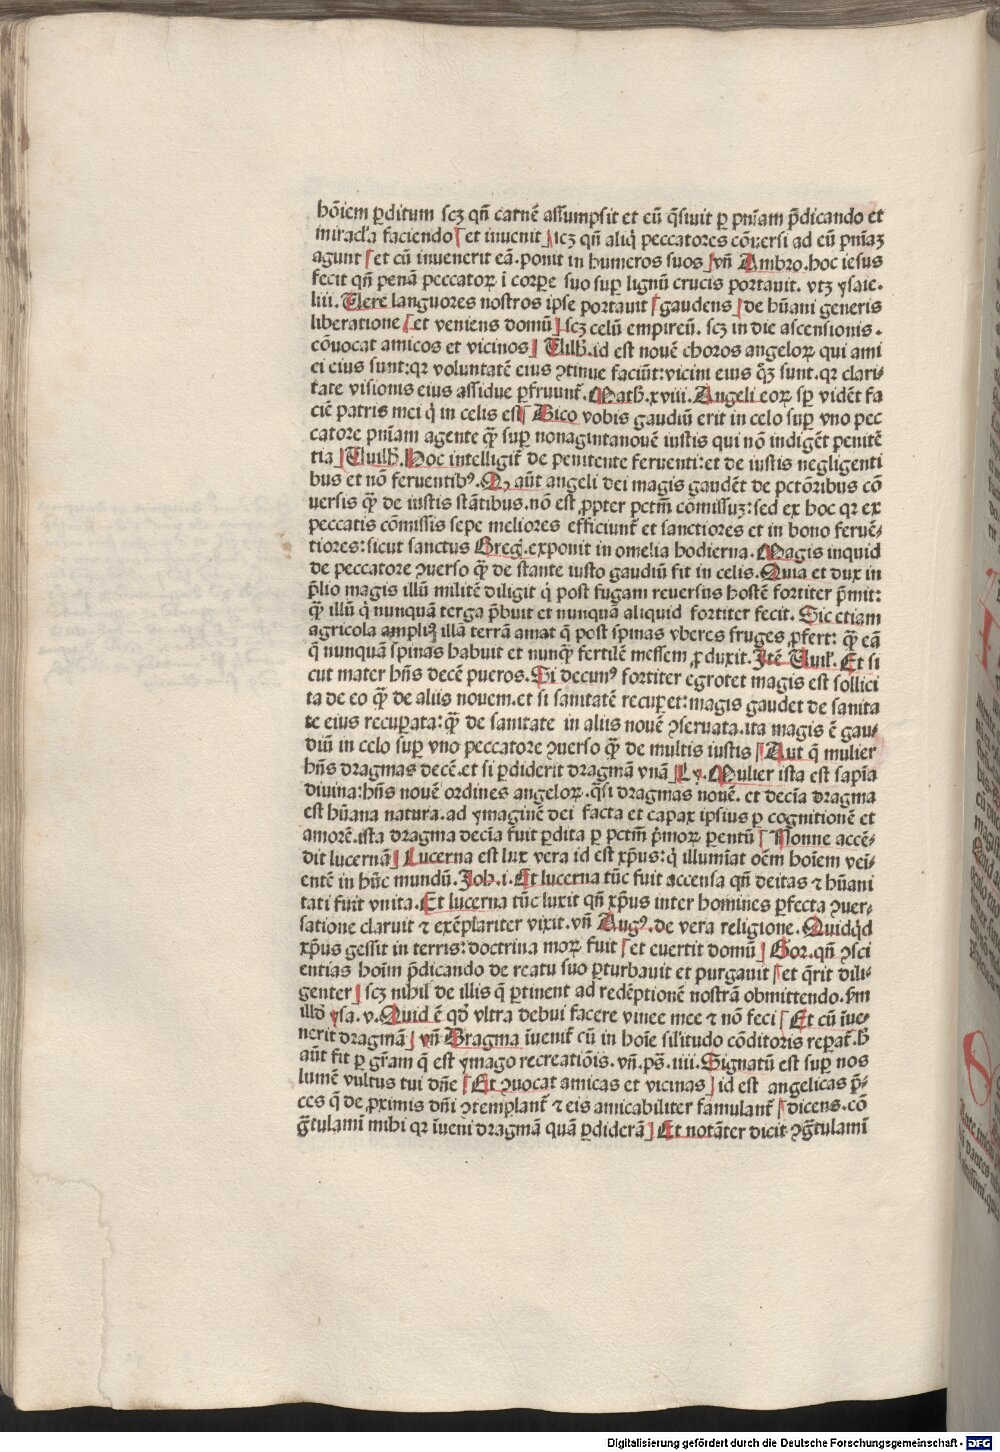 hōiem ꝑditum scꝫ qñ carnē assumpsit et eū q̄siuit ꝑ pniam p̄dicando et
miracl'a faciendo [et inuenit] scꝫ qñ aliq̄ peccatores cōuersi ad eū pniaꝫ
agunt [et cū inuenerit eā.ponit in humeros suos] vñ Ambro.hoc iesus
fecit qñ penā peccatoꝝ ī corꝑe suo suꝑ lignū crucis portauit. vtꝫ ysaie.
liii. Uere languores nostros ipse portauit [gaudens] de hūani generis
liberatione [et veniens domū] scꝫ celū empireū. scꝫ in die ascensionis.
cōuocat amicos et vicinos] Uilh̄.id est nouē choros angeloꝝ qui ami
ci eius sunt:qꝛ voluntatē eius ꝯtinue faciūt:vicini eius qꝫ sunt.qꝛ clari-
tate visionis eius assidue ꝑfruunt̄. Math̄.xviii. Angeli eoꝝ sꝑ vidēt fa
ciē patris mei q̄ in celis est [Dico vobis gaudiū erit in celo suꝑ vno pec
catore pniam agente qꝫ̄ suꝑ nonagintanouē iustis qui nō indigēt penitē
tia] Uuilh̄.Hoc intelligit̄ de penitente feruenti:et de iustis negligenti
bus et nō feruentibꝰ. Qꝫ aūt angeli dei magis gaudēt de pctōribus cō
uersis qꝫ̄ de iustis stātibus.nō est ꝓpter pctm̄ cōmissuꝫ:sed ex hoc qꝛ ex
peccatis cōmissis sepe meliores efficiunt̄ et sanctiores et in bono feruē-
tiores:sicut sanctus Greḡ.exponit in omelia hodierna. Magis inquid
de peccatore ꝯuerso qꝫ̄ de stante iusto gaudiū fit in celis. Quia et dux in
p̄lio magis illū militē diligit q̄ post fugam reuersus hostē fortiter p̄mit:
qꝫ̄ illū q̄ nunquā terga p̄buit et nunquā aliquid fortiter fecit. Sic etiam
agricola ampliꝰ illā terrā amat q̄ post spinas vberes fruges ꝓfert: qꝫ̄ eā
q̄ nunquā spinas habuit et nunqꝫ̄ fertilē messem ꝓduxit. Itē Uuilh̄. Et si
cut mater hñs decē pueros. Si decimꝰ fortiter egrotet magis est sollici
ta de eo qꝫ̄ de aliis nouem.et si sanitatē recuꝑet:magis gaudet de sanita
te eius recuꝑata:qꝫ̄ de sanitate in aliis nouē ꝯseruata.ita magis ē gau-
diū in celo suꝑ vno peccatore ꝯuerso qꝫ̄ de multis iustis [Aut q̄ mulier
hñs dragmas decē.et si ꝑdiderit dragmā vnā] Ly. Mulier ista est sapīa
diuina:hñs nouē ordines angeloꝝ.q̄si dragmas nouē. et decīa dragma
est hūana natura.ad ymaginē dei facta et capax ipsius ꝑ cognitionē et
amorē.ista dragma decīa fuit ꝑdita ꝑ pctm̄ p̄moꝝ ꝑentū [Nonne accē-
dit lucernā] Lucerna est lux vera id est xp̄us:q̄ illumīat oēm hoīem vei-
entē in hūc mundū. Joh.i. Et lucerna tūc fuit accensa qñ deitas ꝛ hūani
tati fuit vnita. Et lucerna tūc luxit qñ xp̄us inter homines ꝑfecta ꝯuer-
satione claruit ꝛ exēplariter vixit.vñ Augꝰ.de vera religione. Quidq̄d
xp̄us gessit in terris:doctrina moꝝ fuit [et euertit domū] Gor.qñ ꝯsci
entias hoīm p̄dicando de reatu suo ꝑturbauit et purgauit [et q̄rit dili-
genter] scꝫ nihil de illis q̄ ꝑtinent ad redēptionē nostrā obmittendo. s̄m
illd̄ ysa.v. Quid ē qd̄ vltra debui facere vinee mee ꝛ nō feci [Et cū īue-
nerit dragmā] vñ Dragma īuenit̄ cū in hoīe silitudo cōditoris reꝑat̄.h̄
aūt fit ꝑ gr̄am q̄ est ymago recreatiōis.vñ.ps̄.iiii. Signatū est suꝑ nos
lumē vultus tui dn̄e [Et ꝯuocat amicas et vicinas] id est angelicas p̄-
ces q̄ de ꝓximis dn̄i ꝯtemplant̄ ꝛ eis amicabiliter famulant̄ [dicens.cō
gr̄tulami mihi qꝛ īueni dragmā quā ꝑdiderā] Et notāter dicit ꝯgr̄tulami
Digitalisierung gefördert durch die Deutsche Forschungsgemeinschaft - DFG